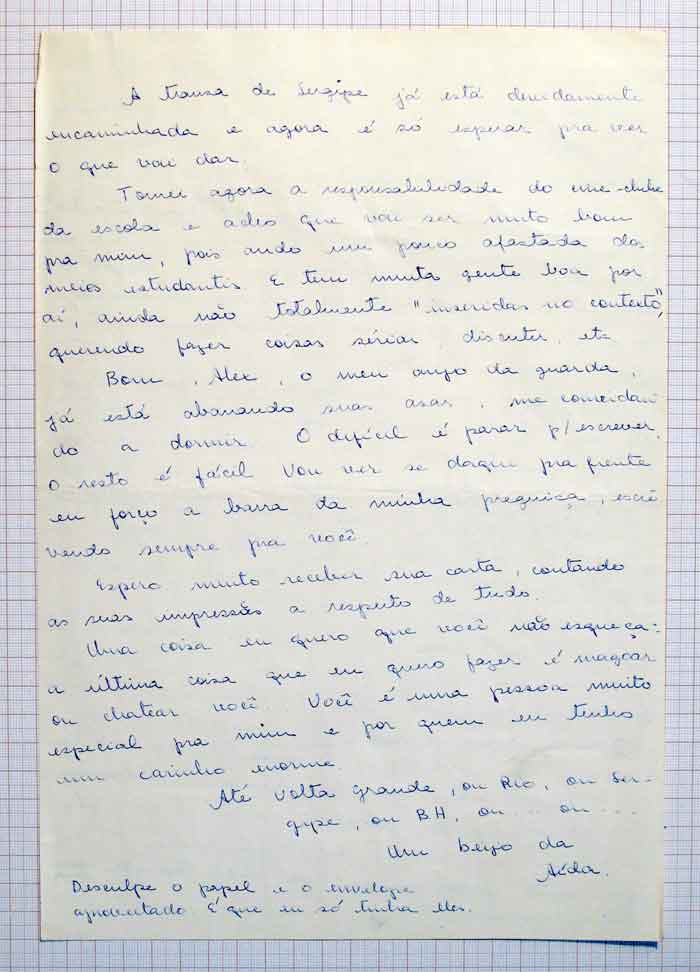 A transa de Sergipe já está devidamente
encaminhada e agora é só esperar pra ver
o que vai dar.
Tomei agora a responsabilidade do cine-clube
da escola e acho que vai ser muito bom
pra mim, pois ando um pouco afastada dos
meios estudantis. E tem muita gente boa por
aí, ainda não totalmente "inseridas no contexto",
querendo fazer coisas sérias, discutir, etc
Bom, Alex, o meu anjo da guarda,
já está abanando suas asas, me convidan
do a dormir. O difícil é parar p/ escrever,
o resto é fácil. Vou ver se daqui pra frente
eu forço a barra da minha preguiça, escre
vendo sempre pra você.
Espero muito receber sua carta, contando
as suas impressões a respeito de tudo.
Uma coisa eu quero que você não esqueça:
a última coisa que eu quero fazer é magoar
ou chatear você. Você é uma pessoa muito
especial pra mim e por quem eu tenho
um carinho enorme.
Até Volta Grande, ou Rio, ou Ser-
gipe, ou B.H, ou ... ou ...
Um beijo da
Aída.
Desculpe o papel e o envelope
aproveitado. É que eu só tinha eles.